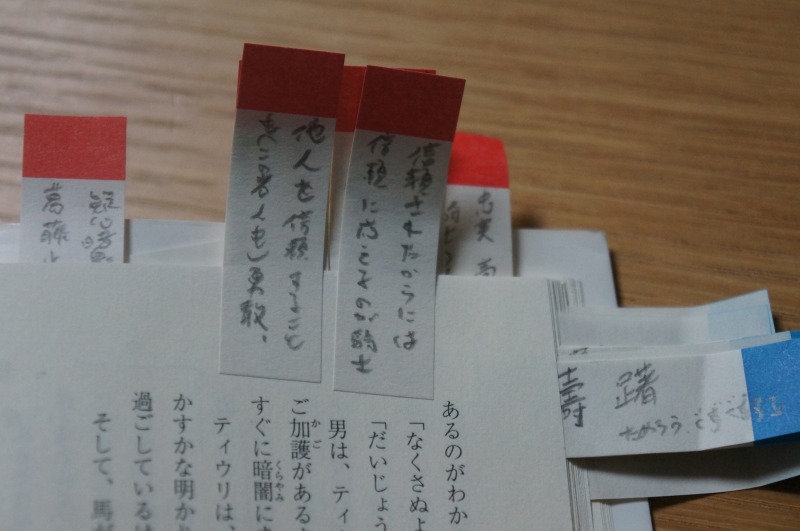 信頼されたからには
信頼に応えるのが騎士
他人を信頼すること
勇敢、
忠実
葛藤
躊躇
ためらう
あるのがわか
「なくさぬよ
「だいじょう
男は、ティ
ご加護がある
かご
すぐに暗闇に
くらやみ
ティウリは、
かすかな明か
過ごしているは
そして、馬が